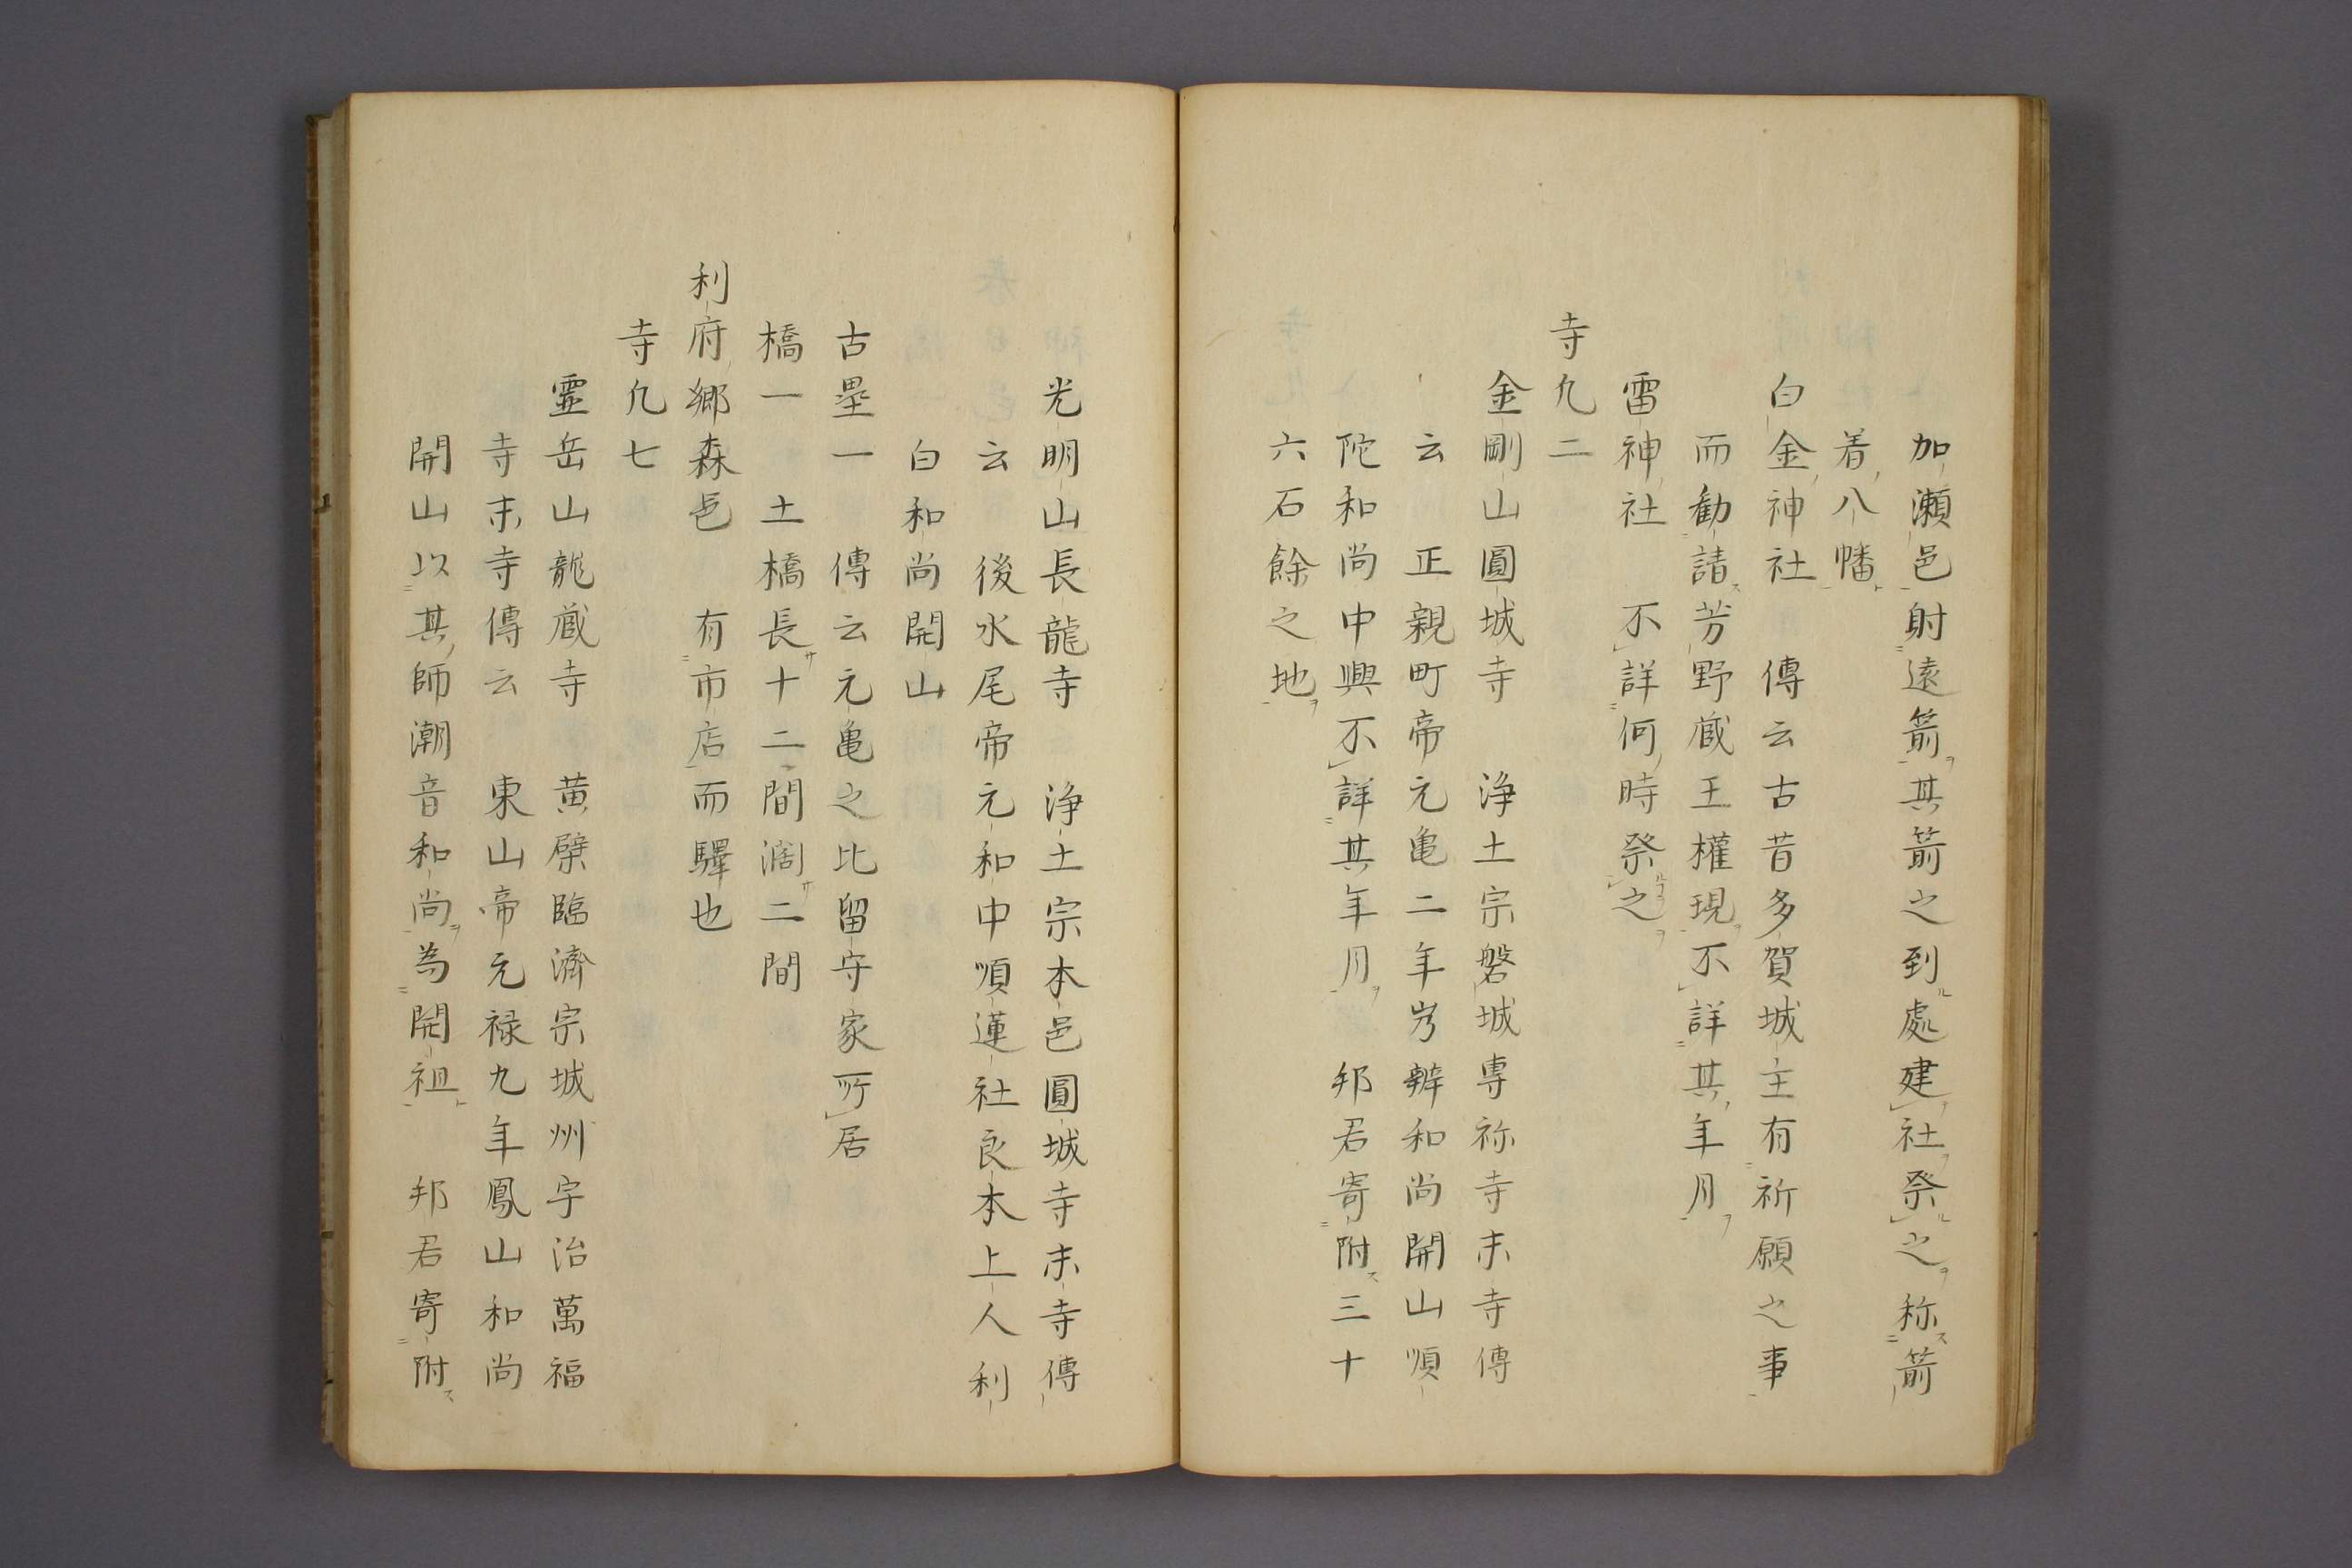 加瀬邑射遠箭其箭之到處建社祭之称箭
着八幡
白金神社　傳云古昔多賀城主有祈願之事
而勧請芳野蔵王權現不詳其年月
雷神社　不詳何時祭之
寺凢二
金剛山圓城寺　浄土宗磐城専祢寺末寺傳
云　正親町帝元亀二年岌辨和尚開山順
陀和尚中興不詳其年月　邦君寄附三十
六石餘之地
光明山長龍寺　浄土宗本邑圓城寺末寺傳
云　後水尾帝元和中順蓮社良本上人利
白和尚開山
古壘一　傳云元亀之比留守家所居
橋一　土橋長十二間濶二間
利府郷森邑　有市店而驛也
寺凢七
霊岳山龍蔵寺　黄檗臨濟宗城州宇治萬福
寺末寺傳云　東山帝元禄九年鳳山和尚
開山以其師潮音和尚為開祖　邦君寄附